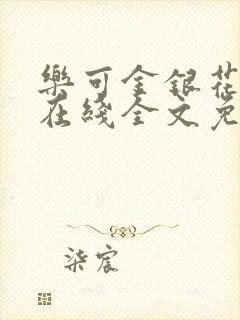 樂可金銀花
在綫全文免
柒宸